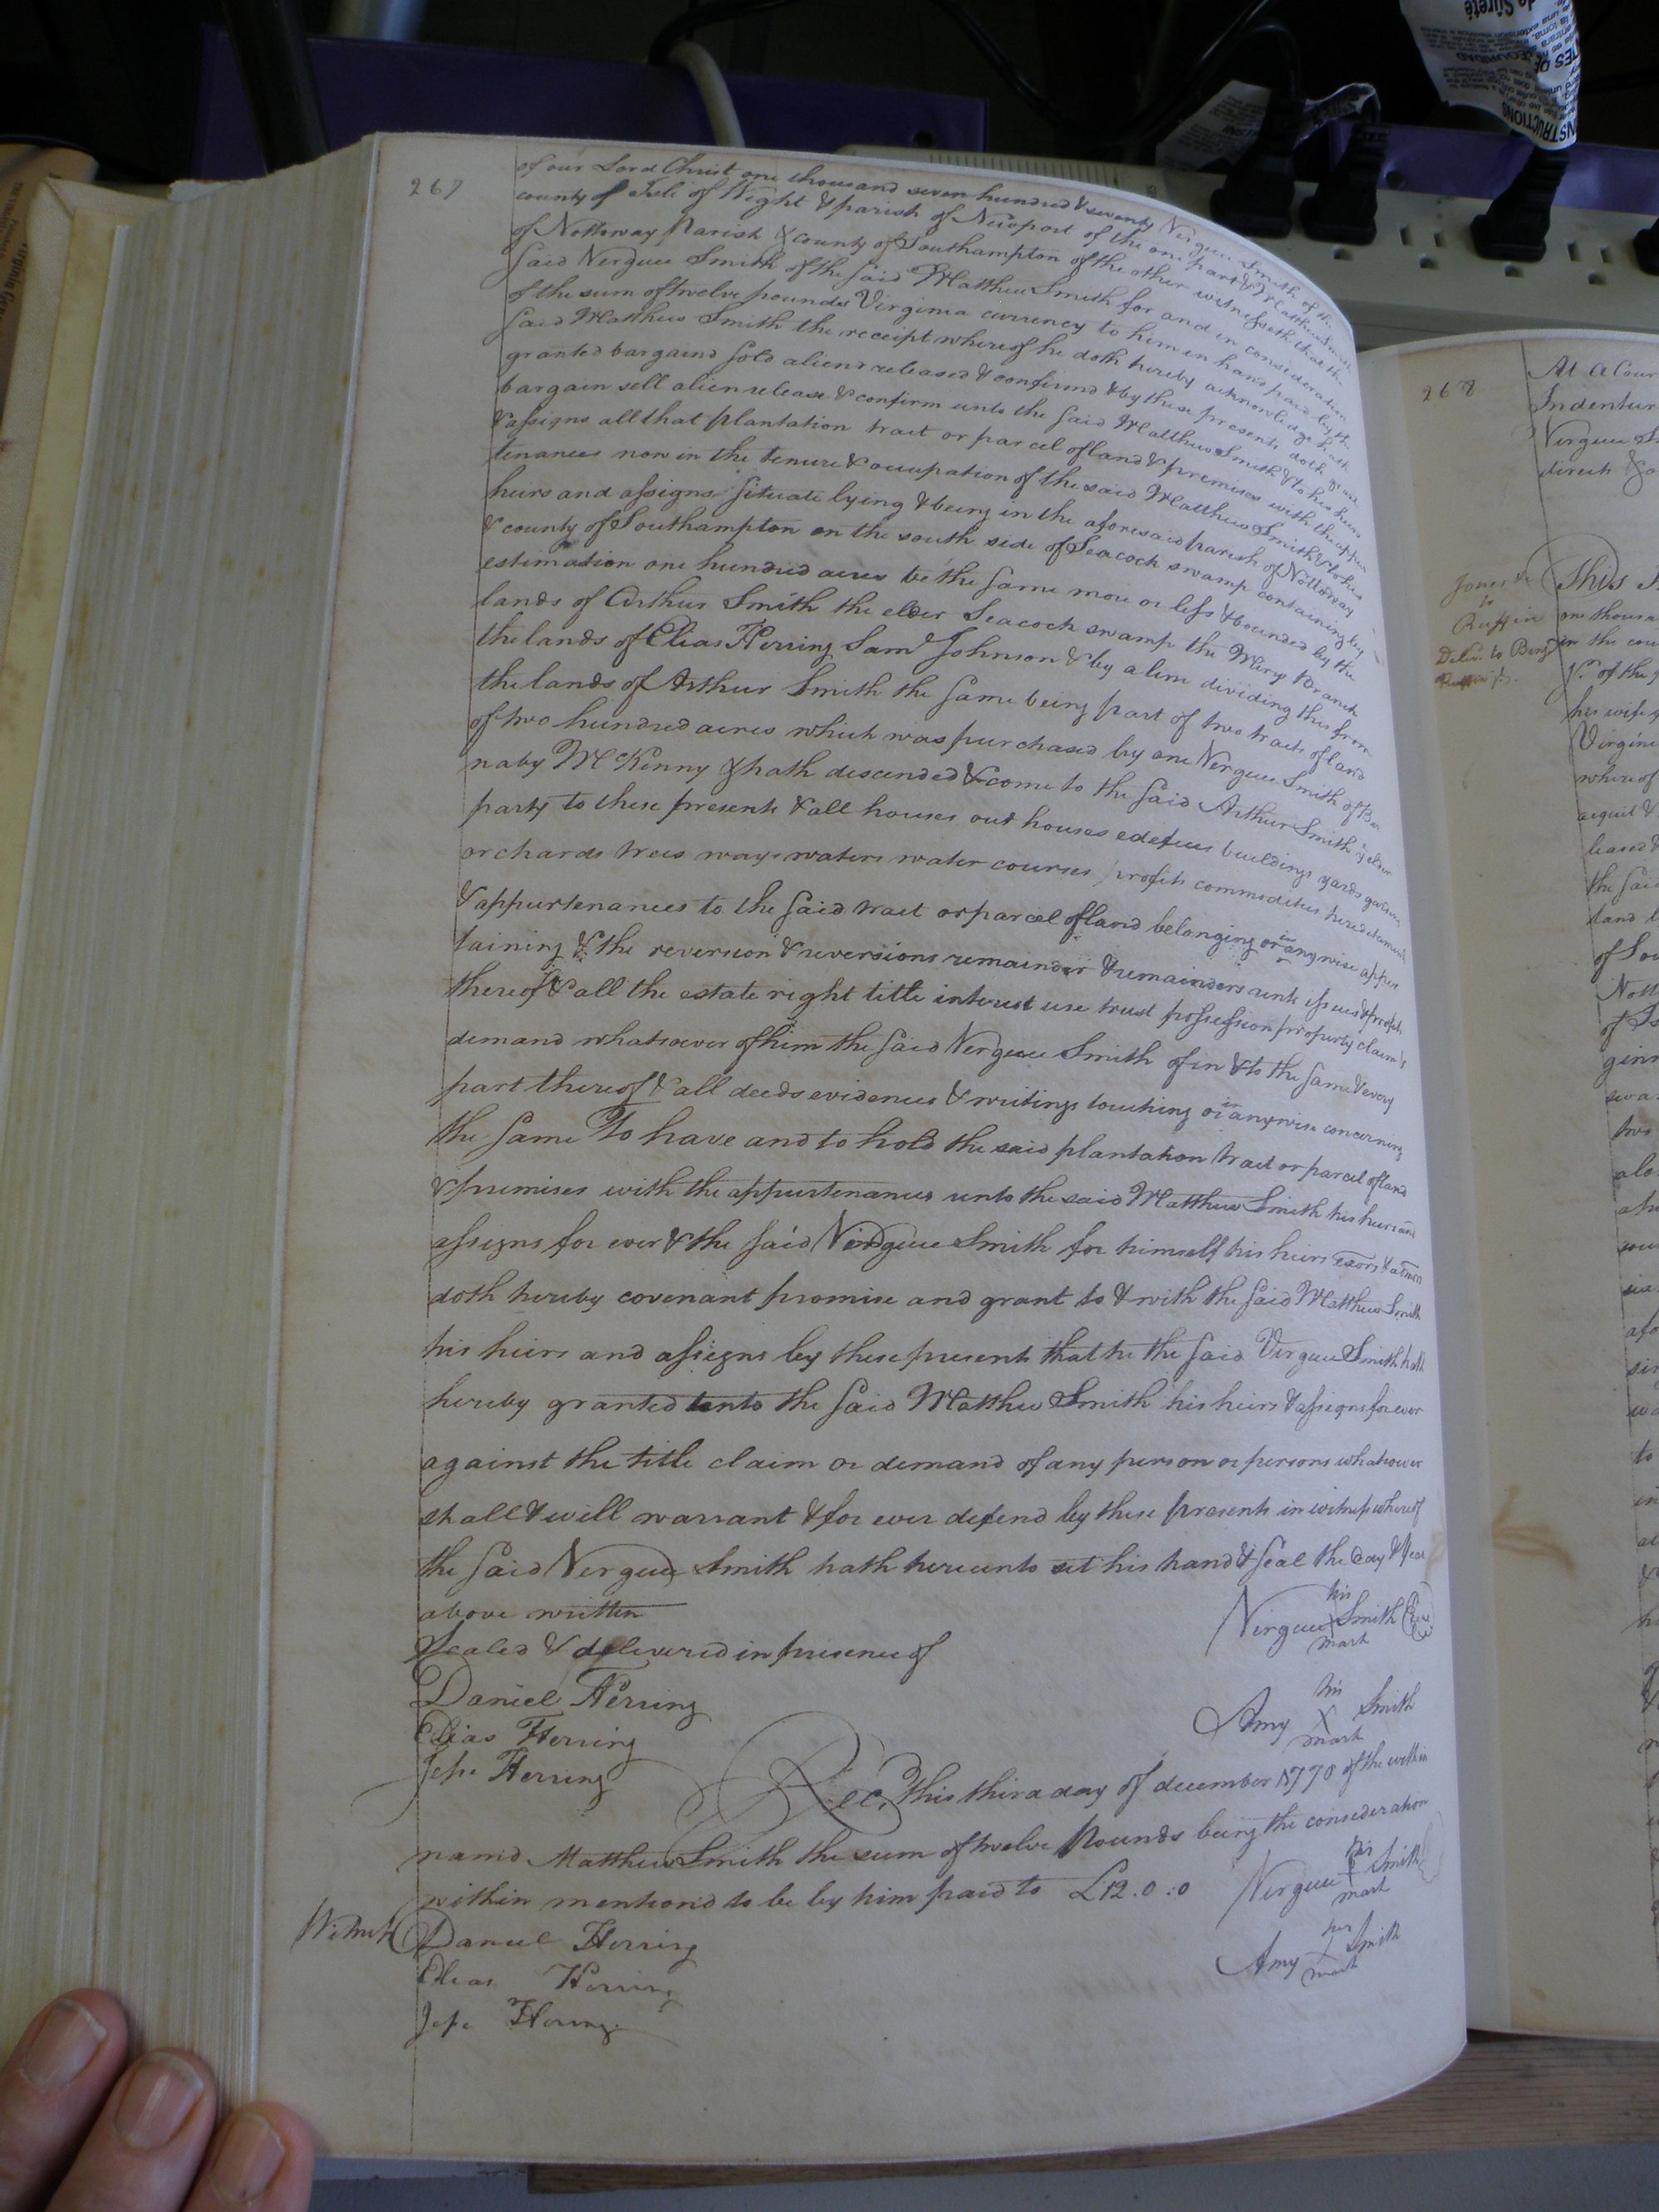 267
of our Lord Christ one thousand seven hundred & seventy Virguu Smith of the
county of Isle of Wight & parish of Newport of the one part & Matthew Smith
of Nottoway Parish & county of Southampton of the other witnesseth that the
said Virguu Smith of the said Matthew Smith for and in consideration
of the sum of twelve pounds Virginia currency to him in hand paid by the
said Matthew Smith the receipt whereof he doth hereby acknowledge hath
granted bargaind sold aliend released & confirmd & by these presents doth grant
bargain sell alien release & confirm unto the said Matthew Smith & to his heirs
& assigns all that plantation tract or parcel of land & premises with the appur
tenances now in the tenure & occupation of the said Matthew Smith & to his
heirs and assigns situate lying & being in the aforesaid parish of Nottoway
& county of Southampton on the south side of Seacock swamp containing by
estimation one hundred acres be the same more or less & bounded by the
lands of Arthur Smith the elder Seacock swamp the Branch
the lands of Elias Herring Saml Johnson & by a line dividing this from
the lands of Arthur Smith the same being part of two tracts of land
of two hundred acres which was purchased by one Virguu Smith of Bar
naby McKinny & hath descended & come to the said Arthur Smith ye elder
party to these presents & all houses out houses edefices buildings yards gardens
orchards trees ways waters water courses profits commodities hereditaments
& appurtenances to the said tract or parcel of land belonging or in anywise apper
taining & the reversion & reversions remainder & remainders rents issues & profits
thereof & all the estate right title interest use trust possession property claim &
demand whatsoever of him the said Virguu Smith of in & to the same & every
part thereof & all deeds evidences & writings touching or in anywise concerning
the same To have and to hold the said plantation tract or parcel of land
& premises with the appurtenances unto the said Matthew Smith his heirs and
assigns for ever & the said Virguu Smith for himself his heirs exors & admrs
doth hereby covenant promise and grant to & with the said Matthew Smith
his heirs and assigns by these presents that he the said Virguu Smith hath
hereby granted unto the said Matthew Smith his heirs & assigns for ever
against the title claim or demand of any person or persons whatsoever
shall & will warrant & for ever defend by these presents in witness whereof
the said Virguu Smith hath hereunto set his hand & seal the day & year
above written
his
Virguu X Smith
mark
Sealed & delivered in presence of
Daniel Herring
Elias Herring
Jesse Herring
his
Amy X Smith
mark
Recd this third day of december 1770 of the within
namd Matthew Smith the sum of twelve Pounds being the consideration
within mentiond to be by him paid to £12.0.0
his
Virguu Smith
mark
Witness Daniel Herring
Elias Herring
Jesse Herring
her
Amy Smith
mark
268
At a Cour
Indentur
Virguu
direct
Jones &c
to
Ruffin
This
one thousa
in the cou
of the
his wife
Virgini
where of
acquit &
the said
land
of Sou
Nott